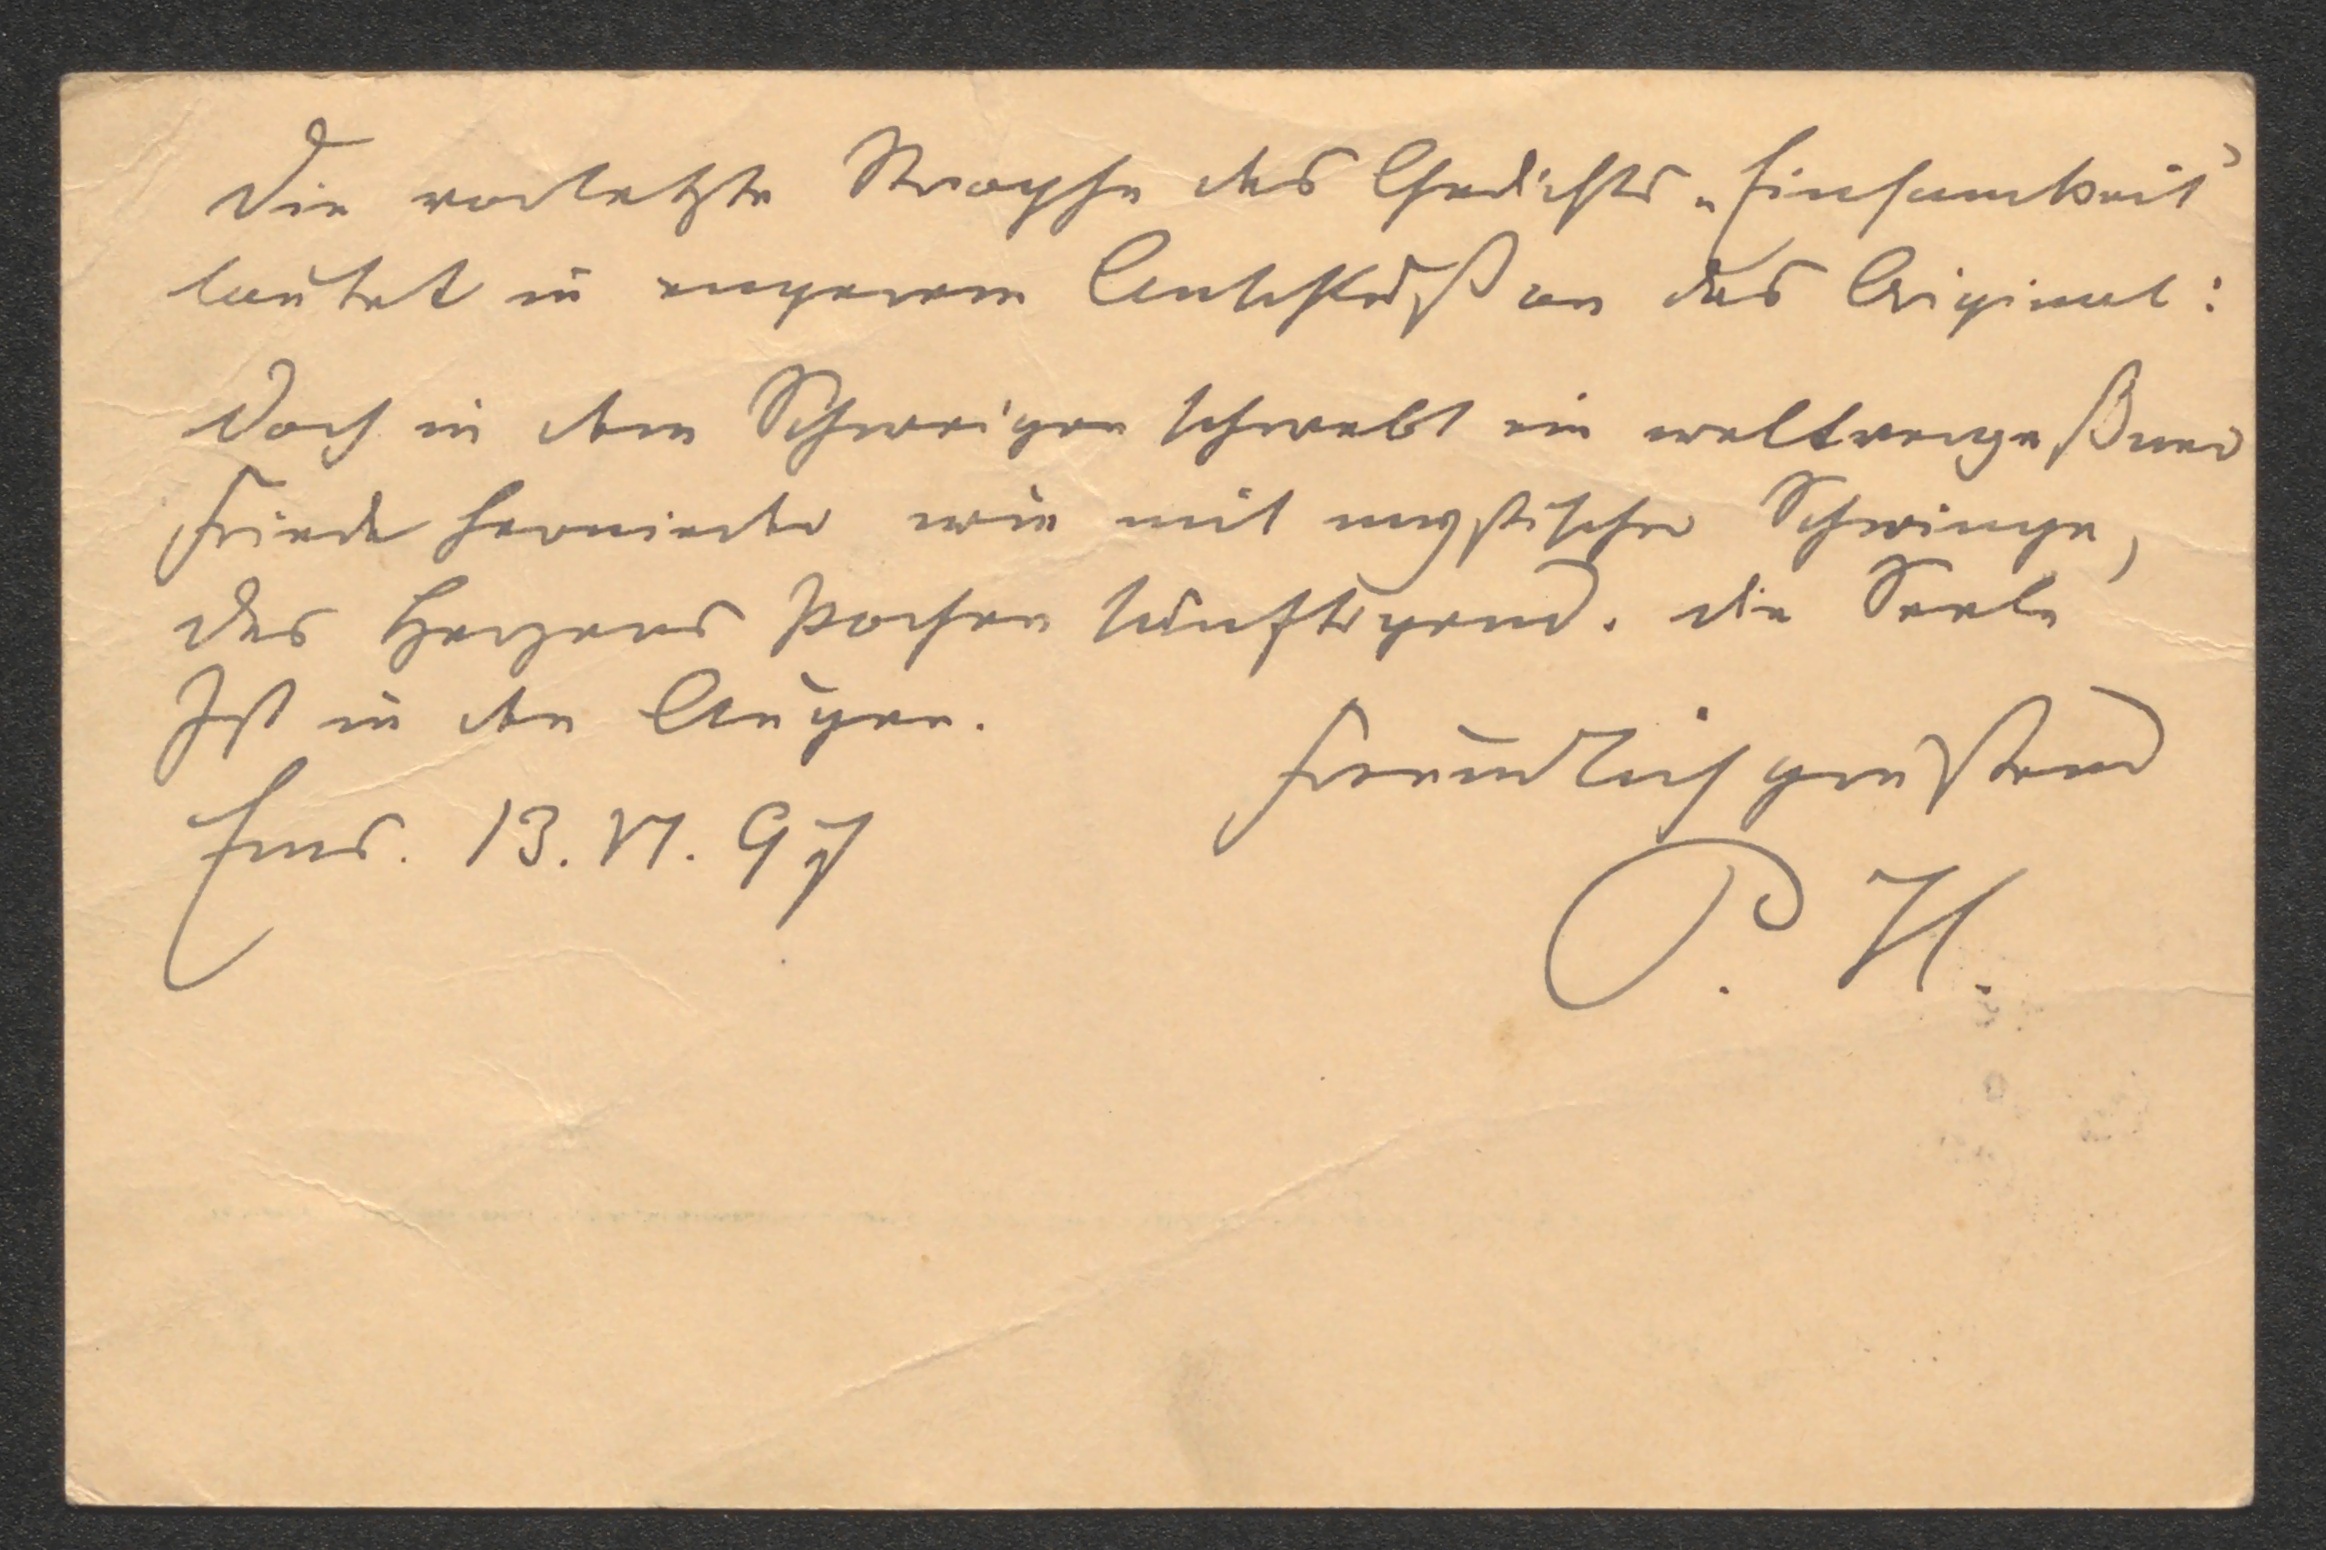 Die vorletzte Strophe des Gedichts „Einsamkeit"
lautet in engerem Anschluß an das Original:
Doch in dem Schweigen schwebt ein weltvergeßner
Friede hernieder wie mit mystischer Schwinge,
Des Herzens Pochen sänftigend. die Seele
Ist in den Augen.
Freundlich grüßend
Ems. 13. VI. 97
P. H.